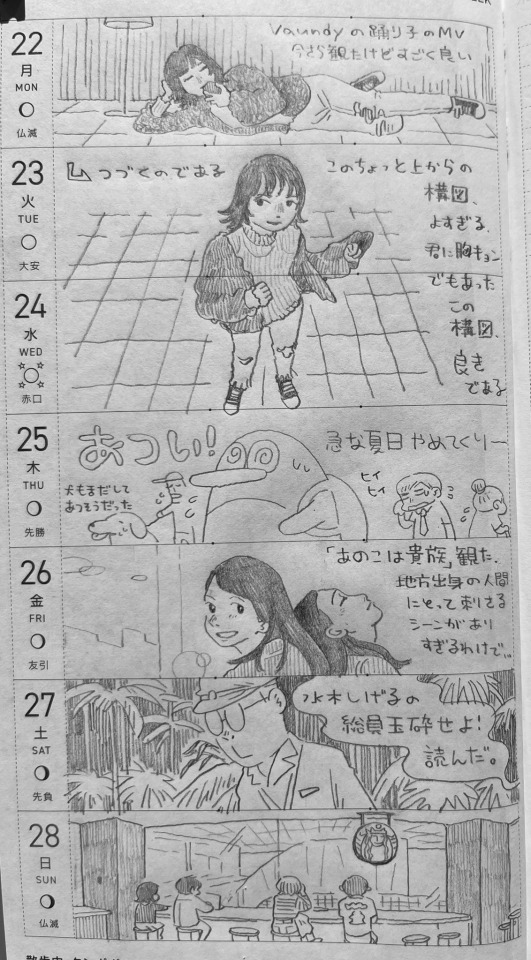 22
月
MON
仏滅
Vaundyの踊り子のMV
今さら観たけどすごく良い
23
火
TUE
大安
つづくのである
このちょっと上からの
構図、
よすぎる、
君に胸キュン
でもあった
この
構図、
良き
である
24
水
WED
赤口
25
木
THU
先勝
あつい!
急な夏日やめてくりー
犬もまだして
あつそうだった
ヒイ
ヒイ
26
金
FRI
友引
「あのこは貴族」観た、
地方出身の人間
にとって刺さる
シーンがあり
すぎるわけで…
27
土
SAT
先負
水木しげるの
総員玉砕せよ!
読んだ。
28
日
SUN
仏滅